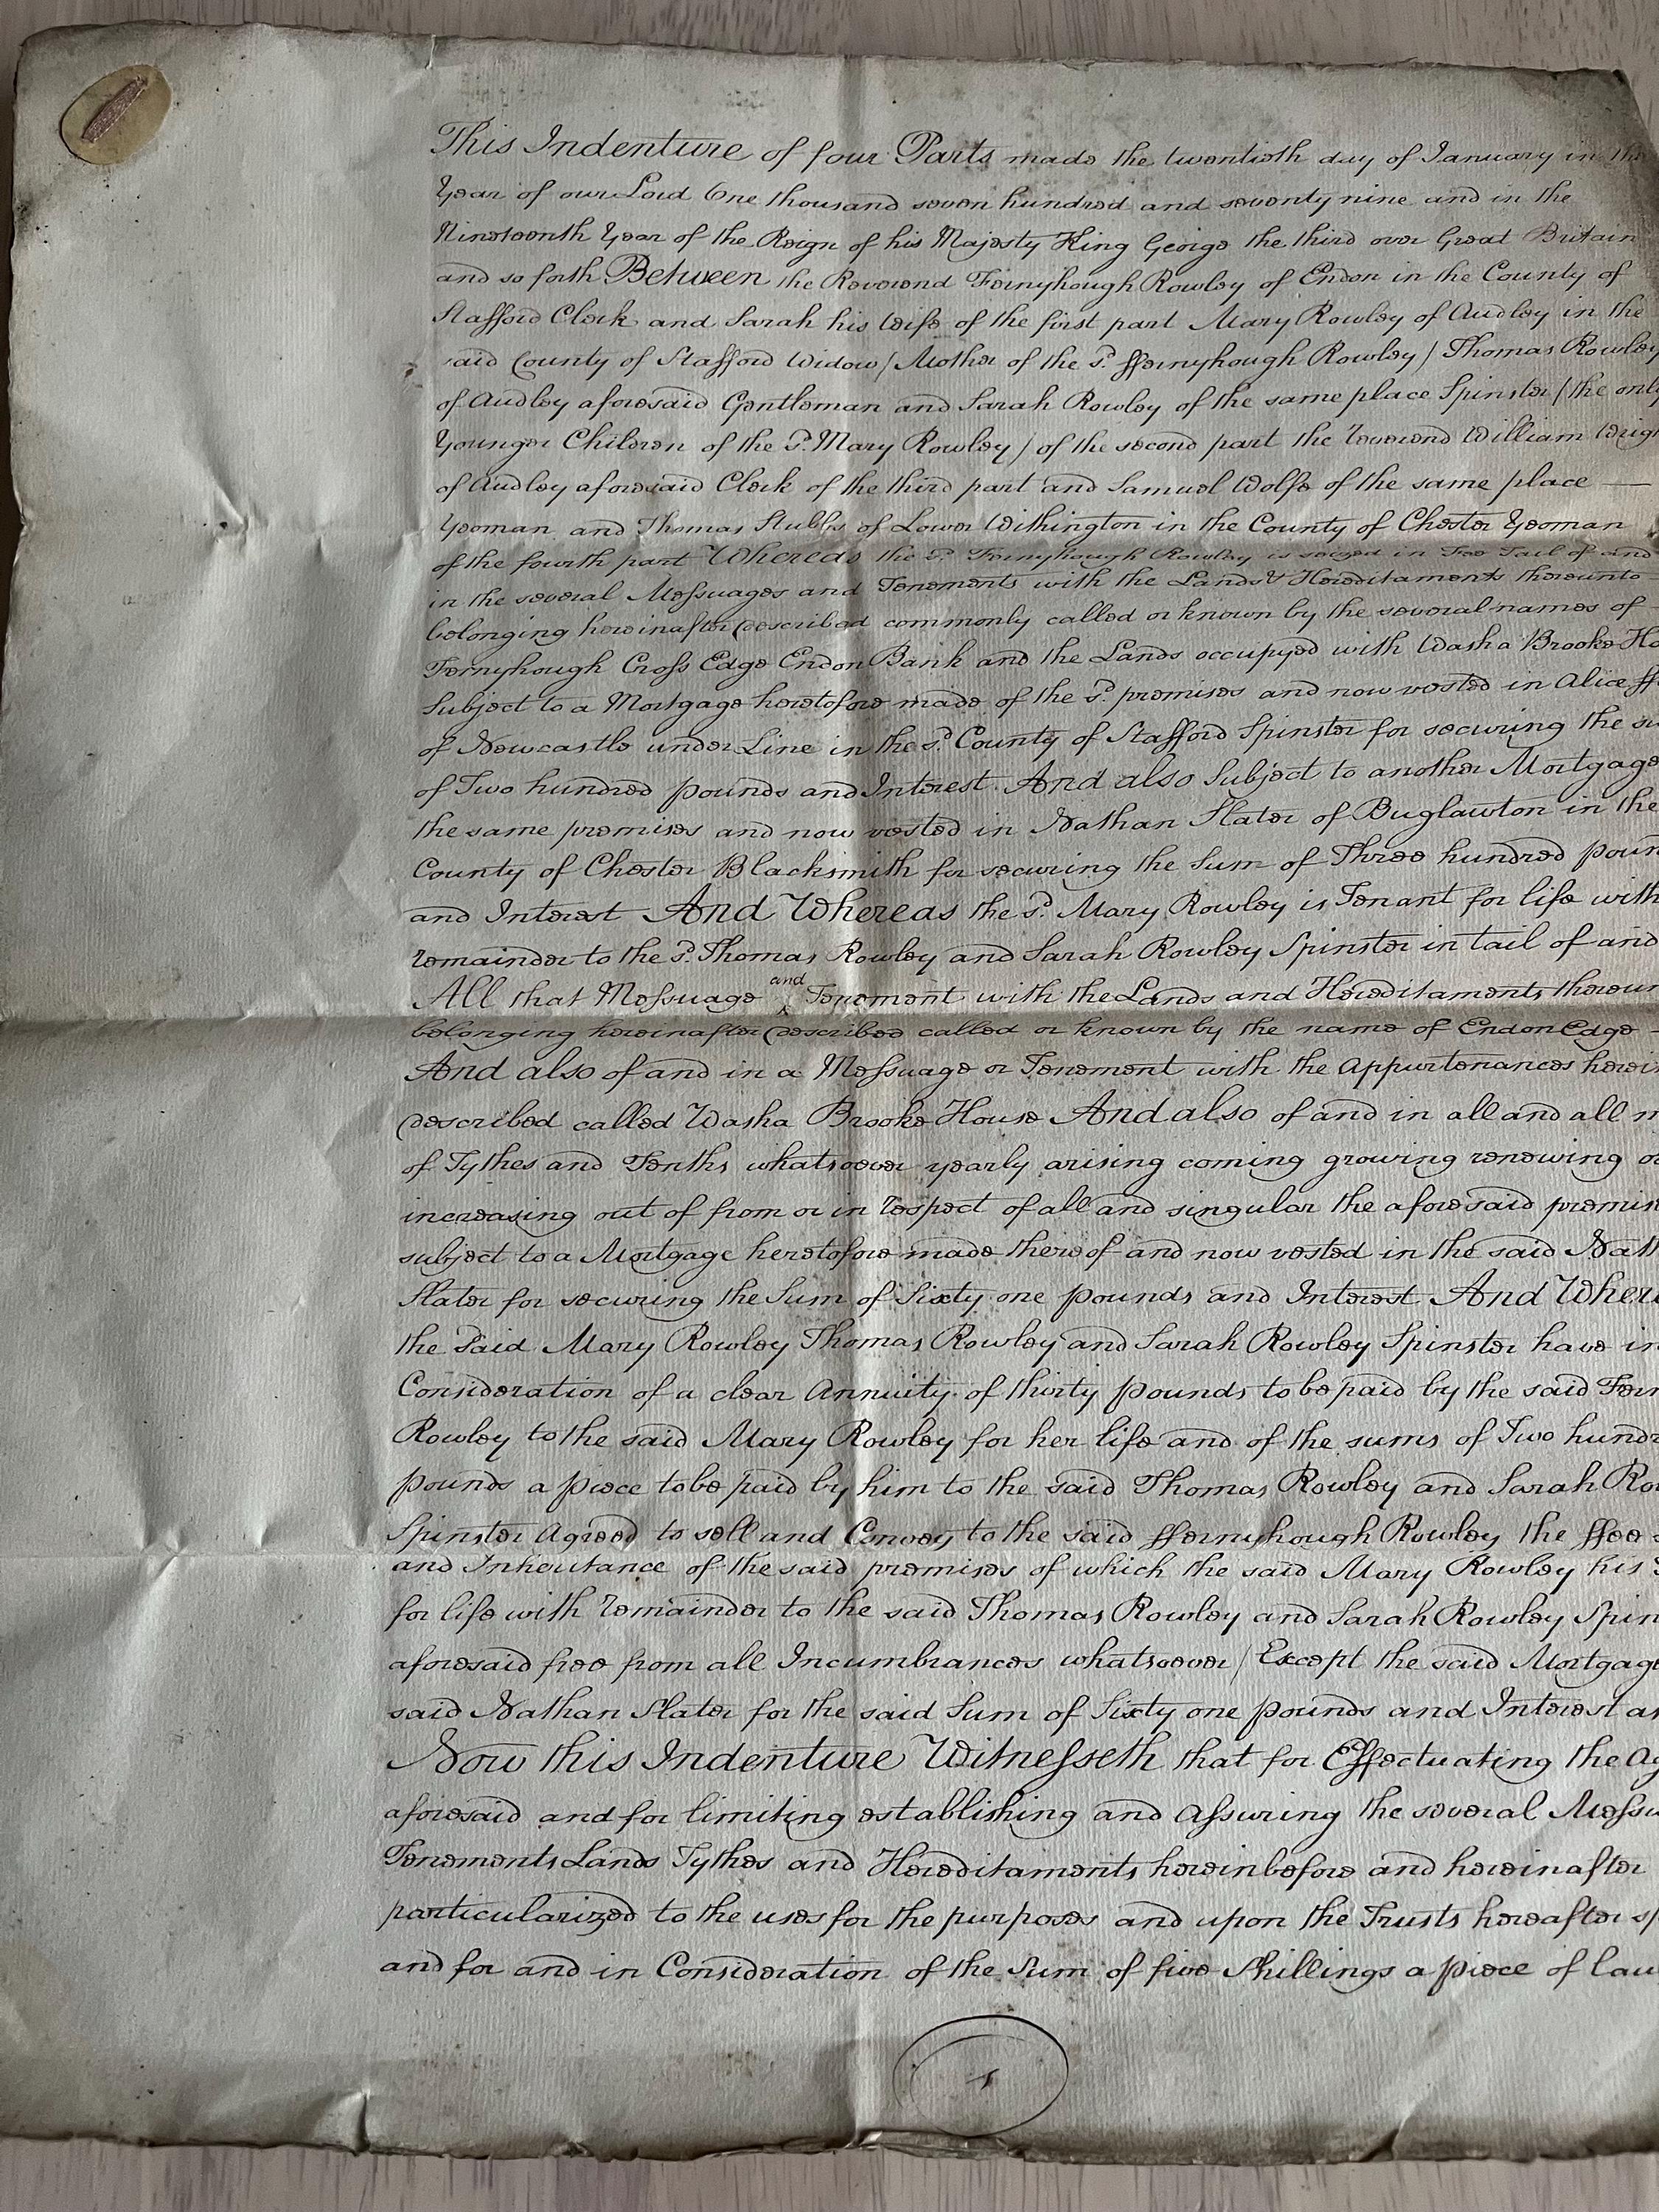 This Indenture of four Parts made the twentieth day of January in the
Year of our Lord One thousand seven hundred and seventy nine and in the
Nineteenth Year of the Reign of his Majesty King George the third over Great Britain
and so forth Between the Reverend Fernyhough Rowley of Endon in the County of
Stafford Clerk and Sarah his Wife of the first part Mary Rowley of Audley in the
said County of Stafford Widow / Mother of the sd. ffernyhough Rowley / Thomas Rowley
of Audley aforesaid Gentleman and Sarah Rowley of the same place Spinster / the only
Younger Children of the sd. Mary Rowley / of the second part the Reverend William Wrig
of Audley aforesaid Clerk of the third part and Samuel Wolfe of the same place —
Yeoman and Thomas Stubbs of Lower Withington in the County of Chester Yeoman
of the fourth part Whereas the sd. Fernyhough Rowley is seized in Fee Tail of and
in the several Messuages and Tenements with the Lands & Hereditaments thereunto
belonging hereinafter described commonly called or known by the several names of
Fernyhough Cross Edge Endon Bank and the Lands occupyed with Washa Brooke Ho
Subject to a Mortgage heretofore made of the sd. premises and now vested in Alice ff
of Newcastle under Line in the sd. County of Stafford Spinster for securing the su
of Two hundred pounds and Interest And also Subject to another Mortgage
the same premises and now vested in Nathan Slater of Buglawton in the
County of Chester Blacksmith for securing the Sum of Three hundred poun
and Interest And Whereas the sd. Mary Rowley is Tenant for life with
remainder to the sd. Thomas Rowley and Sarah Rowley Spinster in tail of and
All that Messuage and Tenement with the Lands and Hereditaments thereun
belonging hereinafter described called or known by the name of Endon Edge -
And also of and in a Messuage or Tenement with the Appurtenances herei
described called Washa Brooke House And also of and in all and all m
of Tythes and Tenths whatsoever yearly arising coming growing renewing o
increasing out of from or in respect of all and singular the aforesaid premis
subject to a Mortgage heretofore made thereof and now vested in the said Nath
Slater for securing the Sum of Sixty one pounds and Interest And Where
the said Mary Rowley Thomas Rowley and Sarah Rowley Spinster have in
Consideration of a clear Annuity of thirty pounds to be paid by the said Fern
Rowley to the said Mary Rowley for her life and of the sums of Two hundr
pounds a piece to be paid by him to the said Thomas Rowley and Sarah Ro
Spinster Agreed to sell and Convey to the said ffernyhough Rowley the ffee
and Inheritance of the said premises of which the said Mary Rowley his
for life with remainder to the said Thomas Rowley and Sarah Rowley Spin
aforesaid free from all Incumbrances whatsoever / Except the said Mortgage
said Nathan Slater for the said Sum of Sixty one pounds and Interest a
Now this Indenture Witnesseth that for Effectuating the Ag
aforesaid and for limiting establishing and assuring the several Messu
Tenements Lands Tythes and Hereditaments hereinbefore and hereinafter
particularized to the uses for the purposes and upon the Trusts hereafter sp
and for and in Consideration of the Sum of five Shillings a piece of law
1